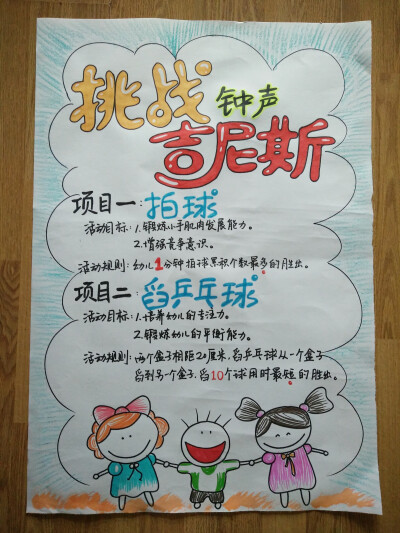 挑战钟声
吉尼斯
项目一:拍球
活动目标:1.锻炼小手肌肉发展能力。
2.增强竞争意识。
活动规则:幼儿1分钟拍球累积个数最多的胜出。
项目二:舀乒乓球
活动目标:1.培养幼儿的专注力。
2.锻炼幼儿的平衡能力。
活动规则:两个盒子相距20厘米,舀乒乓球从一个盒子
舀到另一个盒子,舀10个球用时最短的胜出。